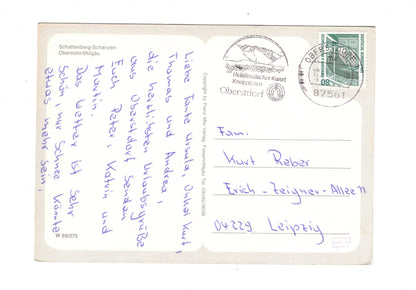 Schattenberg-Schanzen
Oberstdorf/Allgäu
Liebe Tante Ursula, Onkel Kurt,
Thomas und Andrea,
die herzlichsten Urlaubsgrüße
aus Oberstdorf senden
Euch Peter, Katrin und
Martin.
Das Wetter ist sehr
schön, nur Schnee könnte
etwas mehr sein.
W 59/273
Heilklimatischer Kurort
Kneippkurort
Oberstdorf
87561
80
Fam.
Kurt Reber
Erich-Zeigner-Allee 11
04229 Leipzig